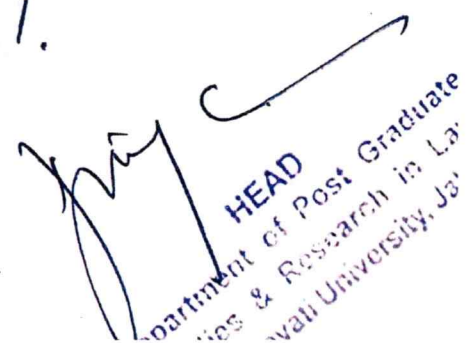 HEAD
partment of Post Graduate
ies & Research in La
vati University, Ja